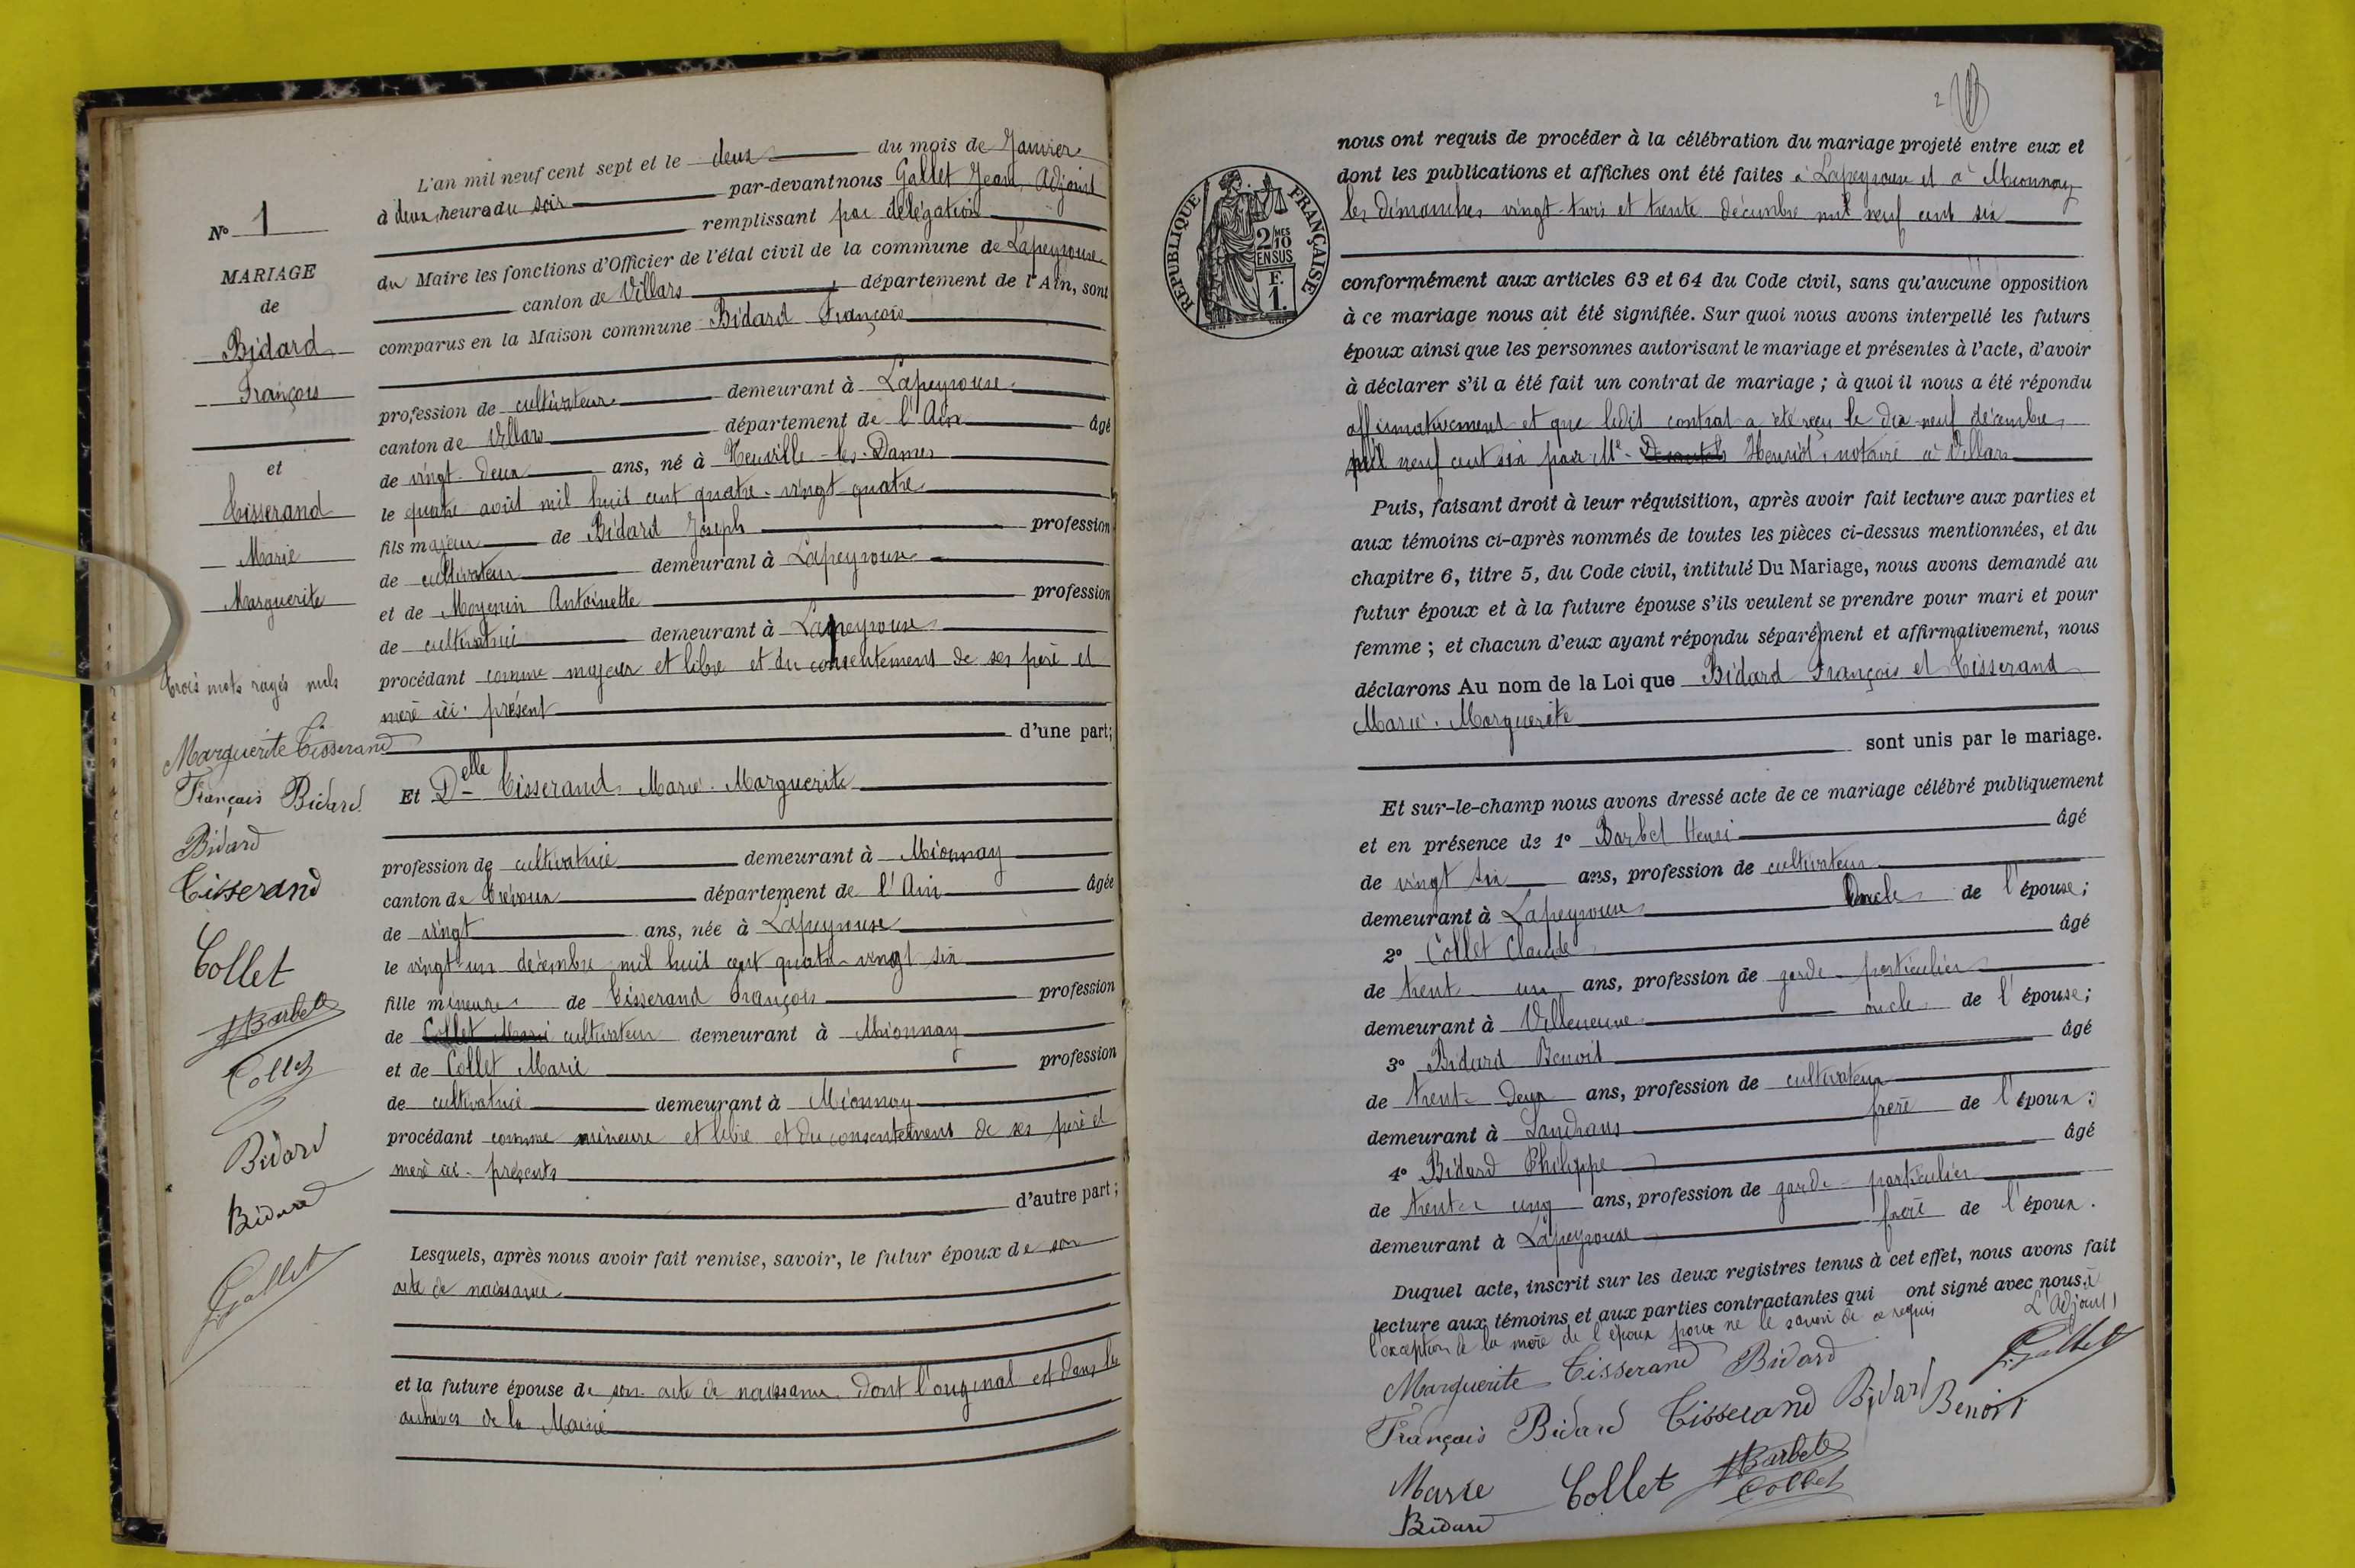 N° 1
MARIAGE
de
Bidard
François
et
Tisserand
Marie
Marguerite
trois mots rayés nuls
Marguerite Tisserand
François Bidard
Bidard
Tisserand
Collet
HBarbet
Collet
Bidard
Bidard
JGallet
L'an mil neuf cent sept et le deux du mois de Janvier
à deux heures du soir par-devant nous Gallet Jean, Adjoint
remplissant par délégation
du Maire les fonctions d'Officier de l'état civil de la commune de Lapeyrouse
canton de Villars, département de l'Ain, sont
comparus en la Maison commune Bidard François
profession de cultivateur demeurant à Lapeyrouse
canton de Villars département de l'Ain âgé
de vingt-deux ans, né à Neuville-les-Dames
le quatre août mil huit cent quatre-vingt-quatre
fils majeur de Bidard Joseph profession
de cultivateur demeurant à Lapeyrouse
et de Moyenin Antoinette profession
de cultivatrice demeurant à Lapeyrouse
procédant comme majeur et libre et du consentement de ses père et
mère ici-présent
d'une part;
Et Delle Tisserand Marie-Marguerite
profession de cultivatrice demeurant à Mionnay
canton de Trévoux département de l'Ain âgée
de vingt ans, née à Lapeyrouse
le vingt-un décembre mil huit cent quatre-vingt six
fille mineure de Tisserand François profession
de Collet Marie cultivateur demeurant à Mionnay
et de Collet Marie profession
de cultivatrice demeurant à Mionnay
procédant comme mineure et libre et du consentement de ses père et
mère ici-présents
d'autre part;
Lesquels, après nous avoir fait remise, savoir, le futur époux de son
acte de naissance
et la future épouse de son acte de naissance dont l'original est dans les
archives de la Mairie
2
RÉPUBLIQUE FRANÇAISE
2/10 MES
EN SUS
F.
1.
nous ont requis de procéder à la célébration du mariage projeté entre eux et
dont les publications et affiches ont été faites à Lapeyrouse et à Mionnay
les dimanches vingt-trois et trente décembre mil neuf cent six
conformément aux articles 63 et 64 du Code civil, sans qu'aucune opposition
à ce mariage nous ait été signifiée. Sur quoi nous avons interpellé les futurs
époux ainsi que les personnes autorisant le mariage et présentes à l'acte, d'avoir
à déclarer s'il a été fait un contrat de mariage; à quoi il nous a été répondu
affirmativement et que ledit contrat a été reçu le dix-neuf décembre
mil neuf cent six par Me Henriot, notaire à Villars
Puis, faisant droit à leur réquisition, après avoir fait lecture aux parties et
aux témoins ci-après nommés de toutes les pièces ci-dessus mentionnées, et du
chapitre 6, titre 5, du Code civil, intitulé Du Mariage, nous avons demandé au
futur époux et à la future épouse s'ils veulent se prendre pour mari et pour
femme; et chacun d'eux ayant répondu séparément et affirmativement, nous
déclarons Au nom de la Loi que Bidard François et Tisserand
Marie-Marguerite
sont unis par le mariage.
Et sur-le-champ nous avons dressé acte de ce mariage célébré publiquement
et en présence de 1° Barbet Henri âgé
de vingt six ans, profession de cultivateur
demeurant à Lapeyrouse Oncle de l'épouse;
2° Collet Claude âgé
de trente-un ans, profession de garde-particulier
demeurant à Villeneuve oncle de l'épouse;
3° Bidard Benoit âgé
de trente-deux ans, profession de cultivateur
demeurant à Sandrans frère de l'époux;
4° Bidard Philippe âgé
de trente un ans, profession de garde-particulier
demeurant à Lapeyrouse frère de l'époux.
Duquel acte, inscrit sur les deux registres tenus à cet effet, nous avons fait
lecture aux témoins et aux parties contractantes qui ont signé avec nous à
l'exception de la mère de l'époux pour ne le savoir de ce requis
L'Adjoint
Marguerite Tisserand Bidard JGallet
François Bidard Tisserand Bidard Benoit
Marie Collet HBarbet
Collet
Bidard